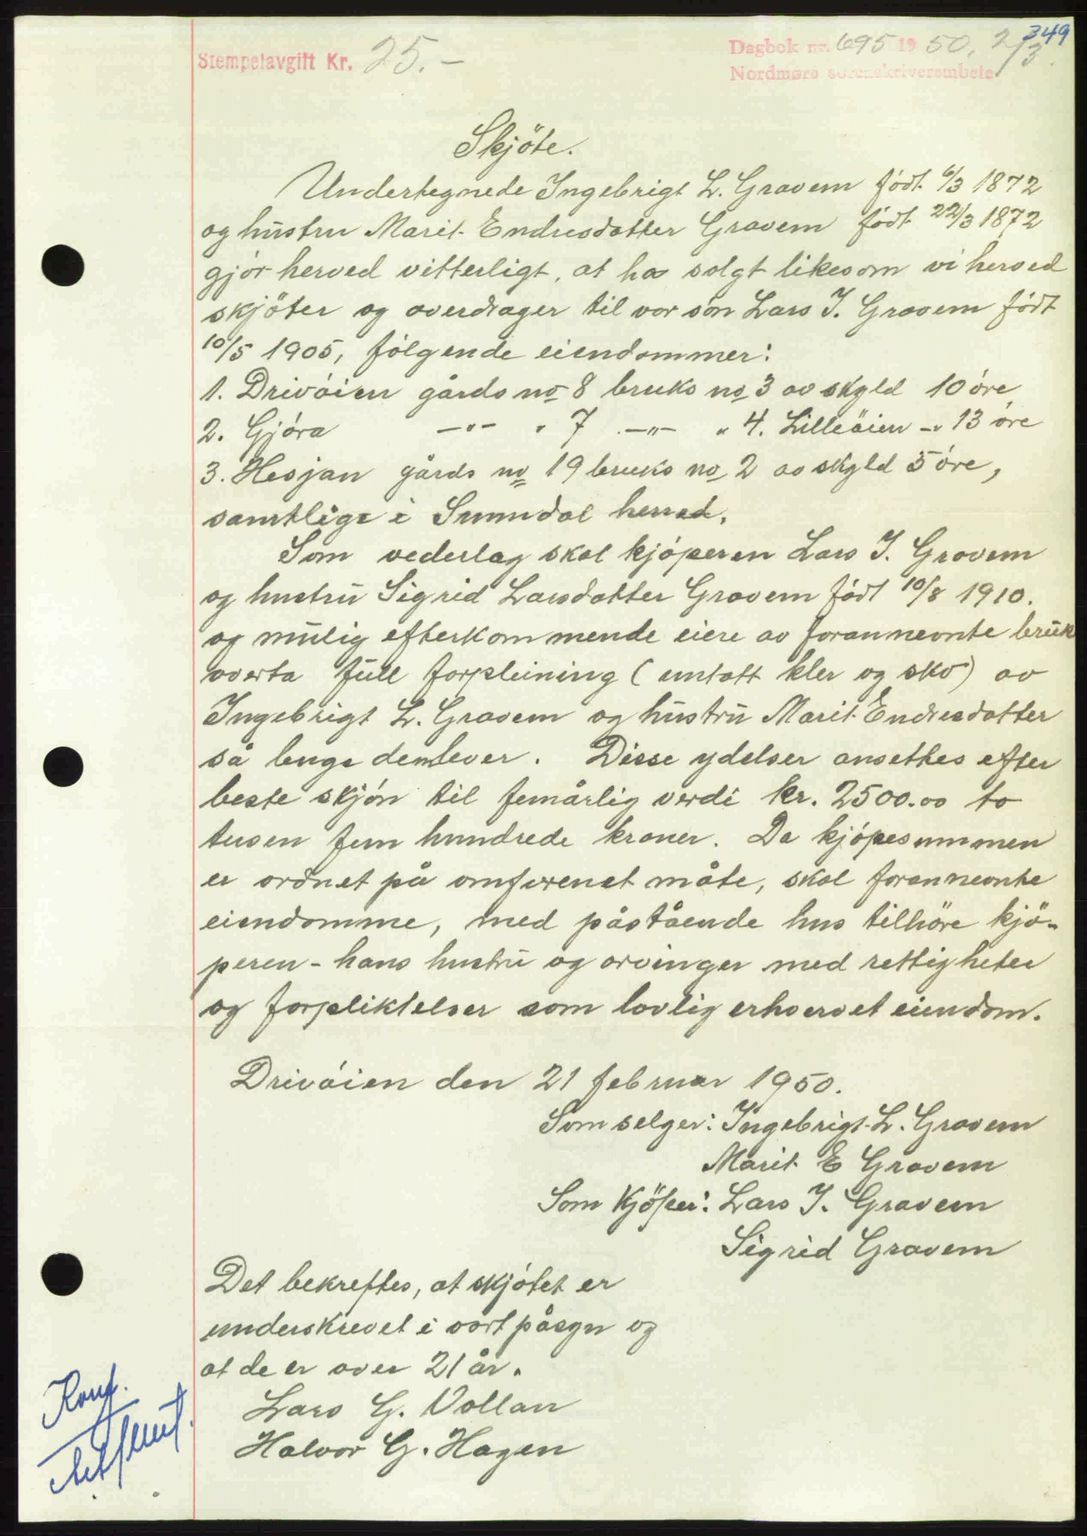 349
Stempelavgift Kr. 25.-
Dagbok nr. 695 1950, 2/3.
Nordmøre sorenskriverembete
Skjöte.
Undertegnede Ingebrigt L. Gravem født 6/3 1872
og hustru Marit Endresdatter Gravem født 22/3 1872
gjör herved vitterligt, at ha solgt likesom vi herved
skjöter og overdrager til vor sön Lars I. Gravem födt
10/5 1905, fölgende eiendommer:
1. Driváien gårds no 8 bruks no 3 av skyld 10 öre
2. Gjöra -"- " 7 -"- " 4. Lilleöien -" 13 öre
3. Hesjan gårds no 19 bruks no 2 av skyld 5 öre,
samtlige i Sunndal herred.
Som vederlag skal kjöperen Lars I. Gravem
og hustru Sigrid Larsdatter Gravem födt 10/8 1910.
og mulig efterkommende eiere av forannevnte bruk
overta full forpleining (untatt kler og sko) av
Ingebrigt L. Gravem og hustru Marit Endresdatter
så lenge de lever. Disse ydelser ansettes efter
beste skjön til femårlig verdi kr. 2500.00 to
tusen fem hundrede kroner. Da kjöpesummen
er ordnet på omforenet måte, skal forannevnte
eiendomme, med påstående hus tilhöre kjö-
peren - hans hustru og arvinger med rettigheter
og forpliktelser som lovlig erhvervet eiendom.
Driváien den 21 februar 1950.
Som selger: Ingebrigt L. Gravem
Marit E Gravem
Som Kjöper: Lars I. Gravem
Sigrid Gravem
Det bekreftes, at skjötet er
underskrevet i vort påsyn og
at de er over 21 år.
Lars G. Vollan
Halvor G. Hagen
Konf.